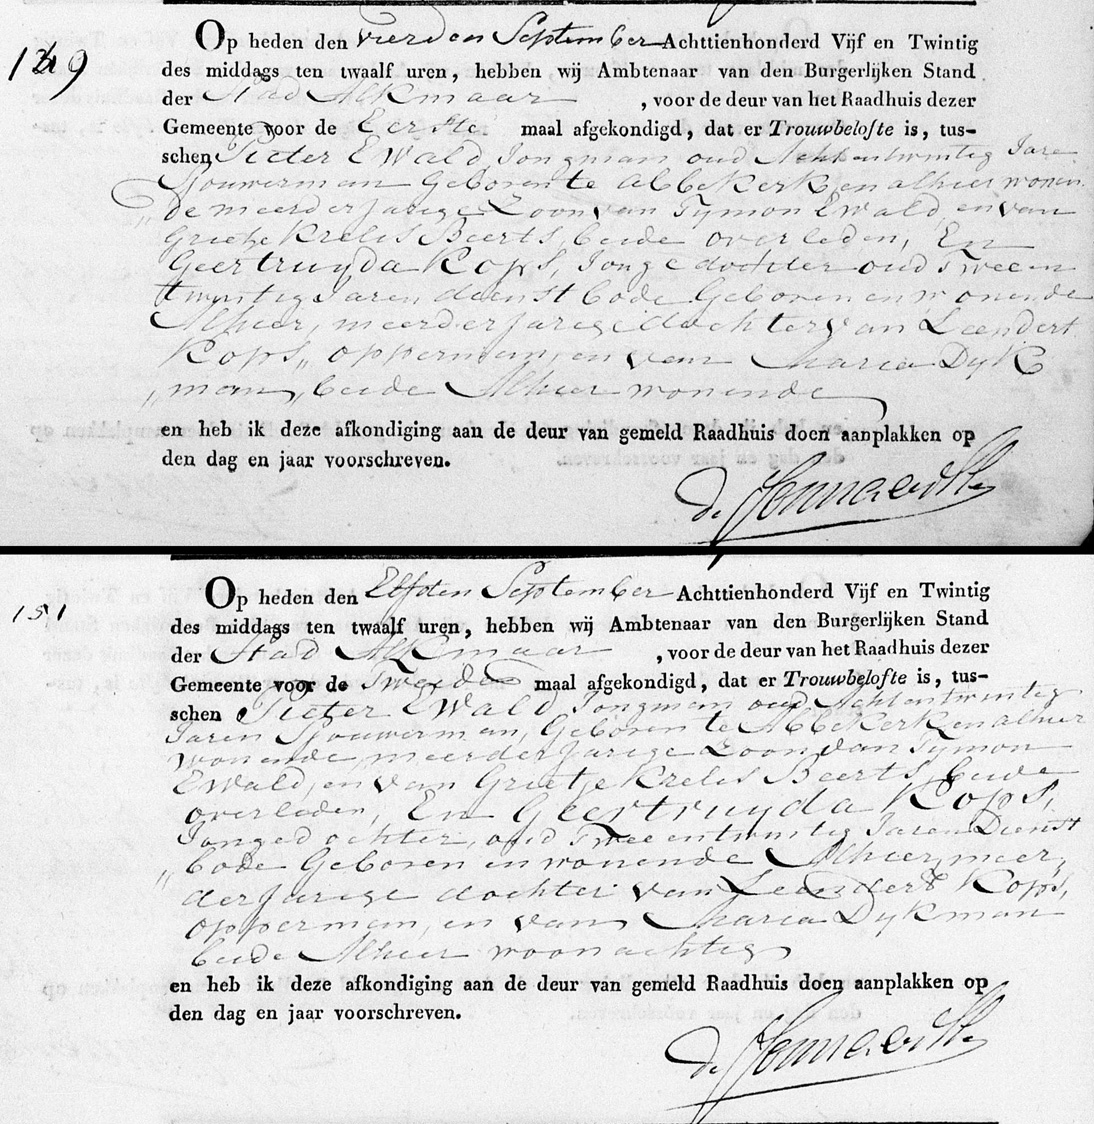 149
Op heden den Vierden September Achttienhonderd Vijf en Twintig
des middags ten twaalf uren, hebben wij Ambtenaar van den Burgerlijken Stand
der Stad Alkmaar , voor de deur van het Raadhuis dezer
Gemeente voor de Eerste maal afgekondigd, dat er Trouwbelofte is, tus-
schen Pieter Ewald, Jongman oud Achtentwintig Jare
Spouwerman Geboren te Abbekerk, en alhier wonen
„de meerderjarige Zoon van Tymon Ewald, en van
Grietje Krelis Beerts, beide overleden, En
Geertruyda Kops, Jonge dochter oud Twee en
twintig Jaren dienst bode Geboren en wonende
Alhier, meerderjarige dochter van Leendert
Kops, opperman, en van Maria Dyk
„man, beide Alhier wonende
en heb ik deze afkondiging aan de deur van gemeld Raadhuis doen aanplakken op
den dag en jaar voorschreven.
151
Op heden den Elfden September Achttienhonderd Vijf en Twintig
des middags ten twaalf uren, hebben wij Ambtenaar van den Burgerlijken Stand
der Stad Alkmaar , voor de deur van het Raadhuis dezer
Gemeente voor de Tweede maal afgekondigd, dat er Trouwbelofte is, tus-
schen Pieter Ewald Jongman oud Achtentwintig
Jaren Spouwerman, Geboren te Abbekerk en alhier
wonende, meerderjarige Zoon van Tymon
Ewald, en van Grietje Krelis Beerts, beide
overleden, En Geertruyda Kops,
Jonged ochter, oud Twee entwintig Jaren Dienst
„bode Geboren en wonende Alhier, meer,
derjarige dochter van Leendert Kops,
opperman, en van Maria Dykman
beide Alhier woonachtig
en heb ik deze afkondiging aan de deur van gemeld Raadhuis doen aanplakken op
den dag en jaar voorschreven.